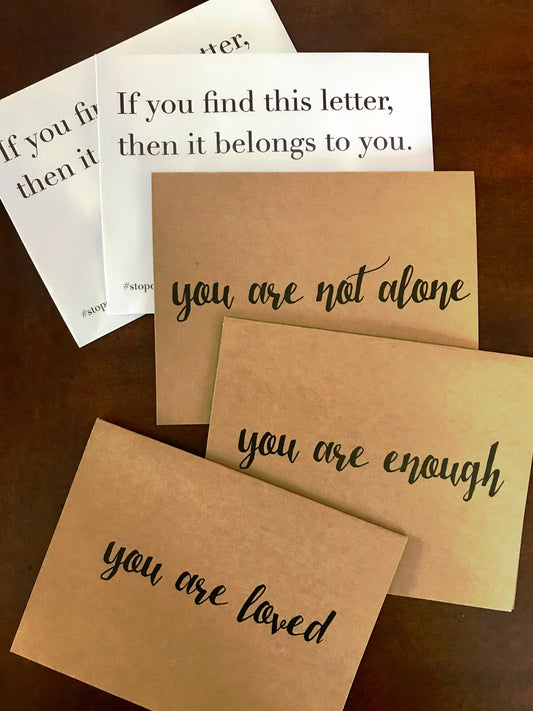 If you fin tter,
then it
#stopo
If you find this letter,
then it belongs to you.
#stopo
you are not alone
you are enough
you are loved